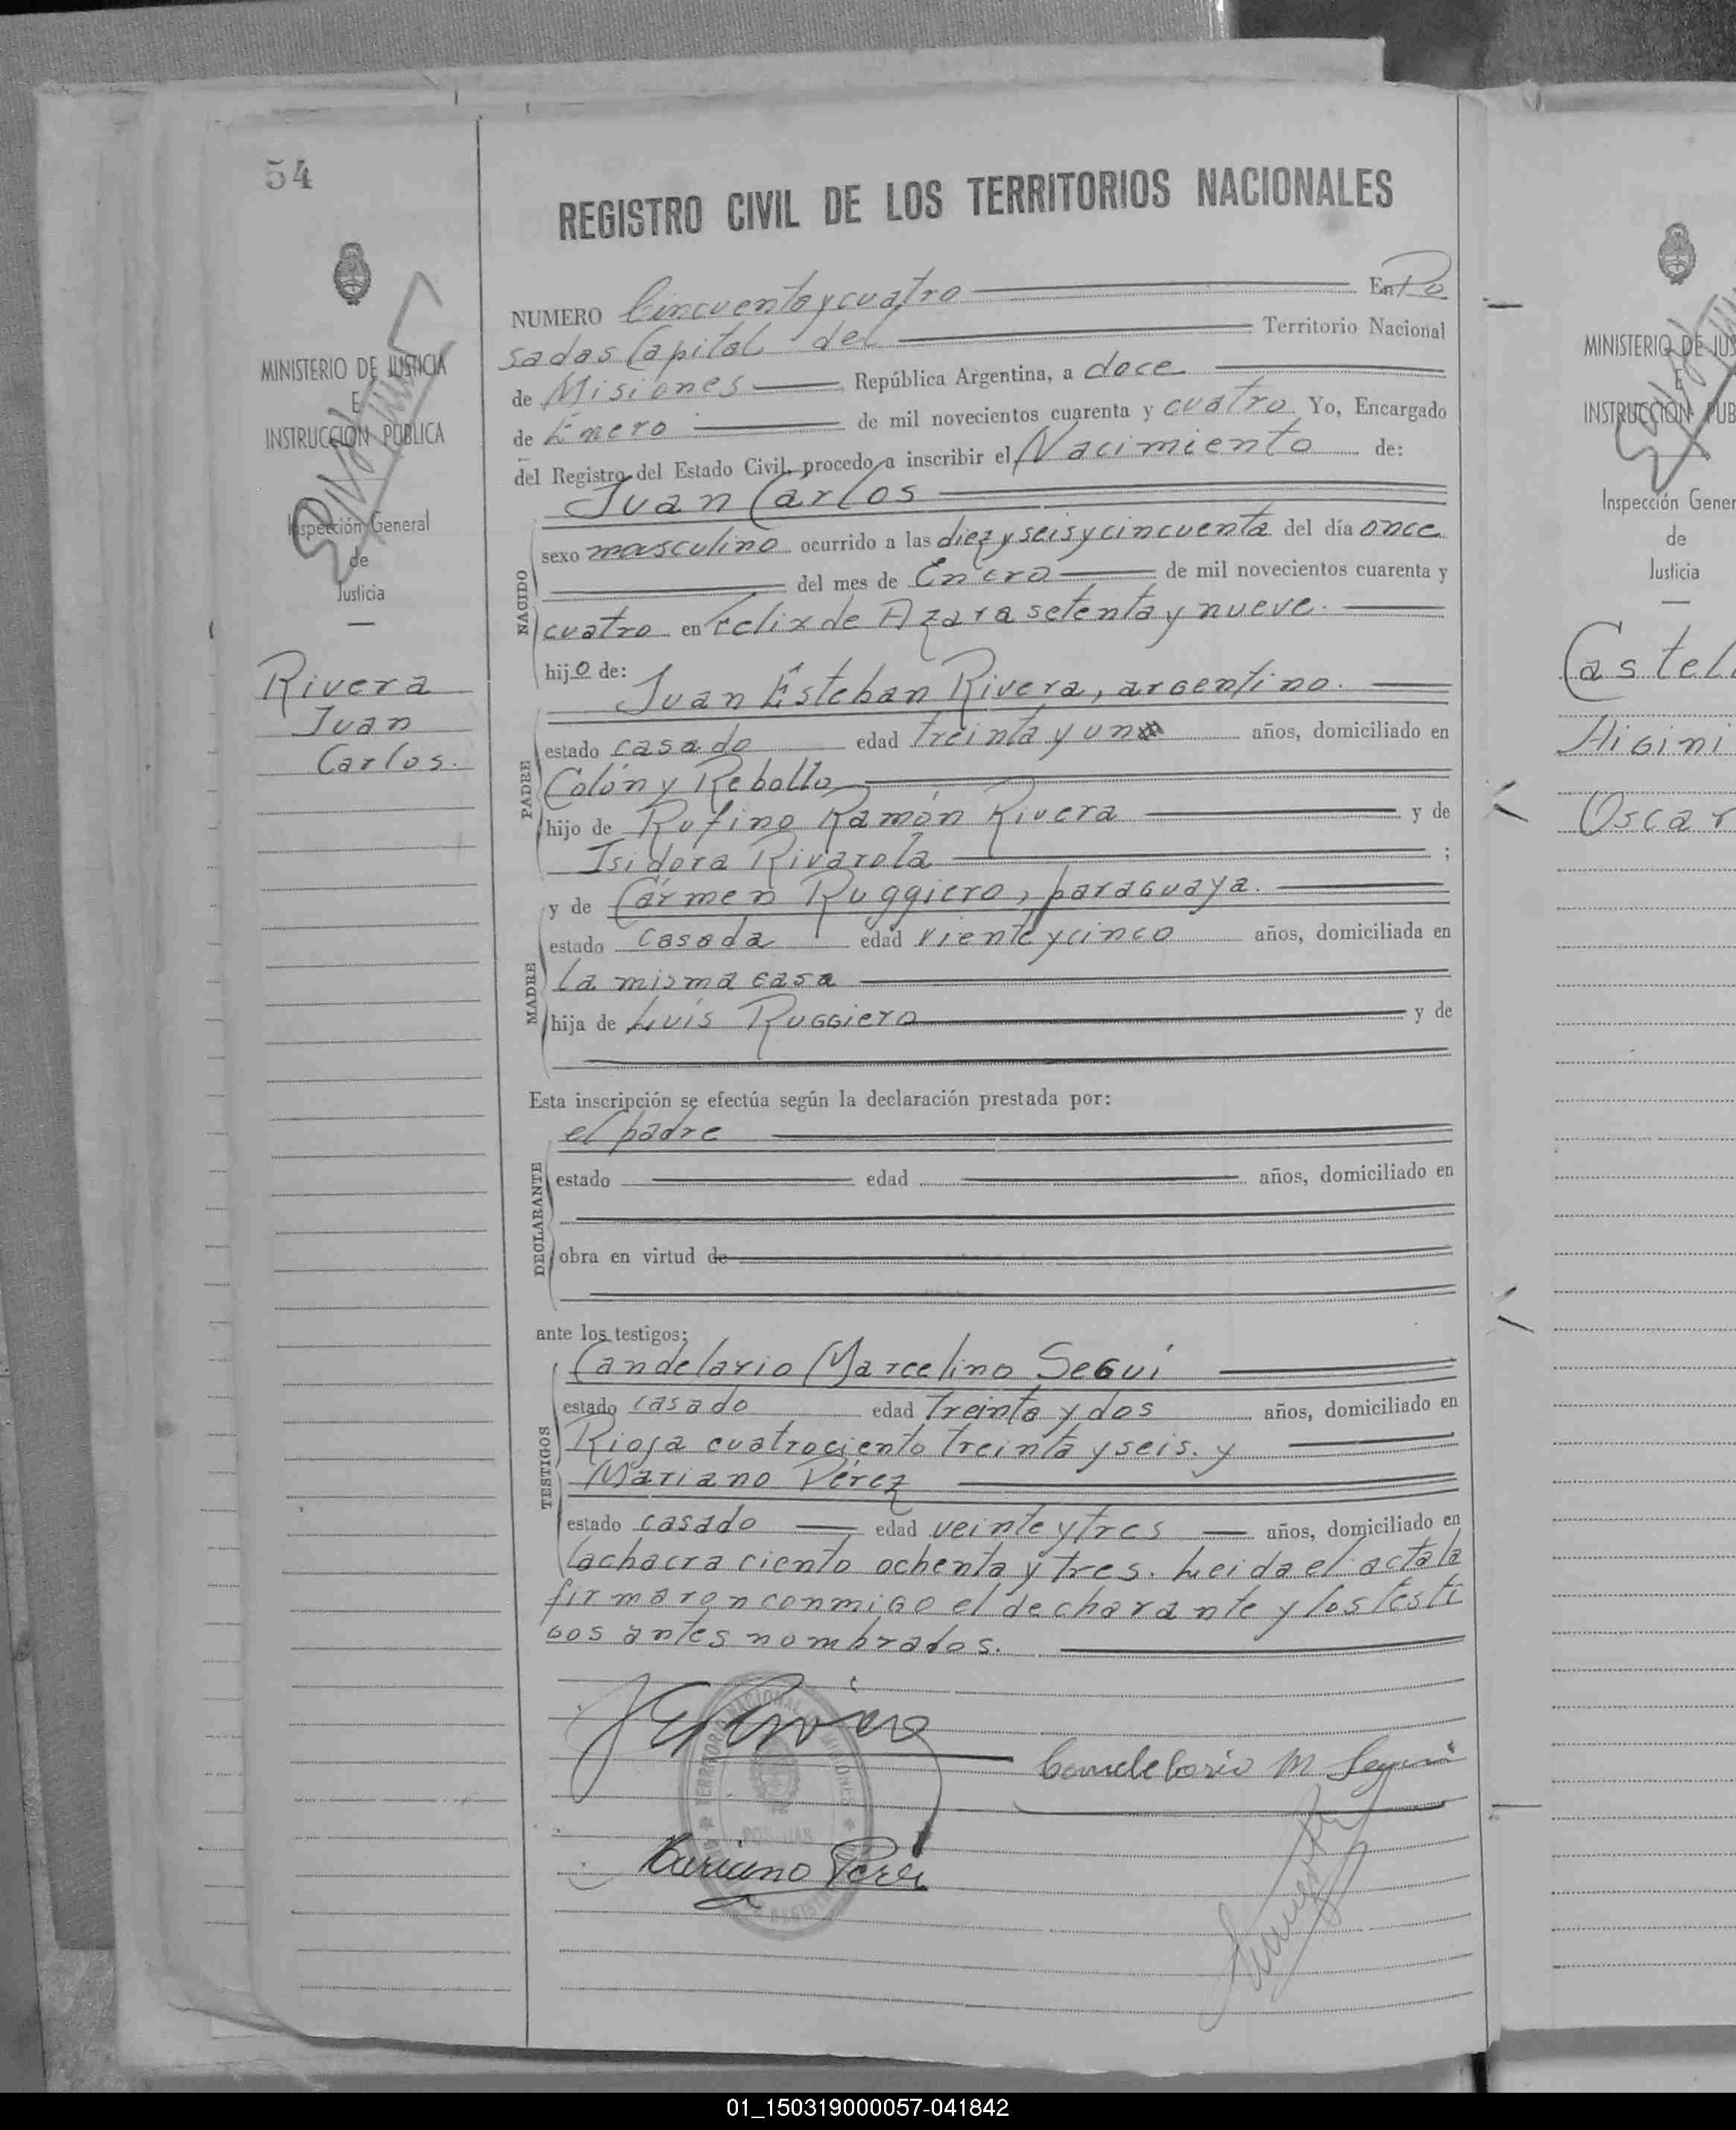 54
REGISTRO CIVIL DE LOS TERRITORIOS NACIONALES
NUMERO Cincuenta y cuatro En Po
sadas Capital del Territorio Nacional
de Misiones República Argentina, a doce
de Enero de mil novecientos cuarenta y cuatro Yo, Encargado
del Registro del Estado Civil, procedo a inscribir el Nacimiento de:
Juan Carlos
NACIDO
sexo masculino ocurrido a las diez y seis y cincuenta del día once
del mes de Enero de mil novecientos cuarenta y
cuatro en Felix de Azara setenta y nueve.
hijo de:
Juan Esteban Rivera, argentino.
PADRE
estado casado edad treinta y un años, domiciliado en
Colón y Rebollo
hijo de Rufino Ramón Rivera y de
Isidora Rivarola ;
y de Cármen Ruggiero, paraguaya.
MADRE
estado casada edad viente y cinco años, domiciliada en
la misma casa
hija de Luís Ruggiero y de
Esta inscripción se efectúa según la declaración prestada por:
el padre
DECLARANTE
estado edad años, domiciliado en
obra en virtud de
ante los testigos:
Candelario Marcelino Seguí
TESTIGOS
estado casado edad treinta y dos años, domiciliado en
Rioja cuatrociento treinta y seis. y
Mariano Pérez
estado casado edad veinte y tres años, domiciliado en
lachacra ciento ochenta y tres. Leida el acta la
firmaron conmigo el decharante y los testi
gos antes nombrados.
Candelario M Segui
Mariano Perez
TERRITORIO NACIONAL DE MISIONES
POSADAS
MINISTERIO DE JUSTICIA
E
INSTRUCCION PUBLICA
Inspección General
de
Justicia
Rivera
Juan
Carlos.
MINISTERIO DE JUS
E
INSTRUCCION PUB
Inspección Gener
de
Justicia
Castel
Higini
Oscar
01_150319000057-041842